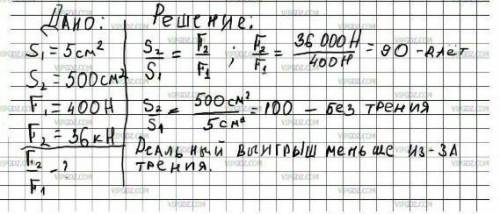 Дано:
S₁ = 5см²
S₂ = 500см²
F₁ = 400Н
F₂ = 36кН
F₂/F₁ - ?
Решение:
S₂/S₁ = F₂/F₁ ; F₂/F₁ = 36 000Н/400Н = 90 - даёт
S₂/S₁ = 500см²/5см² = 100 - без трения
Реальный выигрыш меньше из-за
трения.